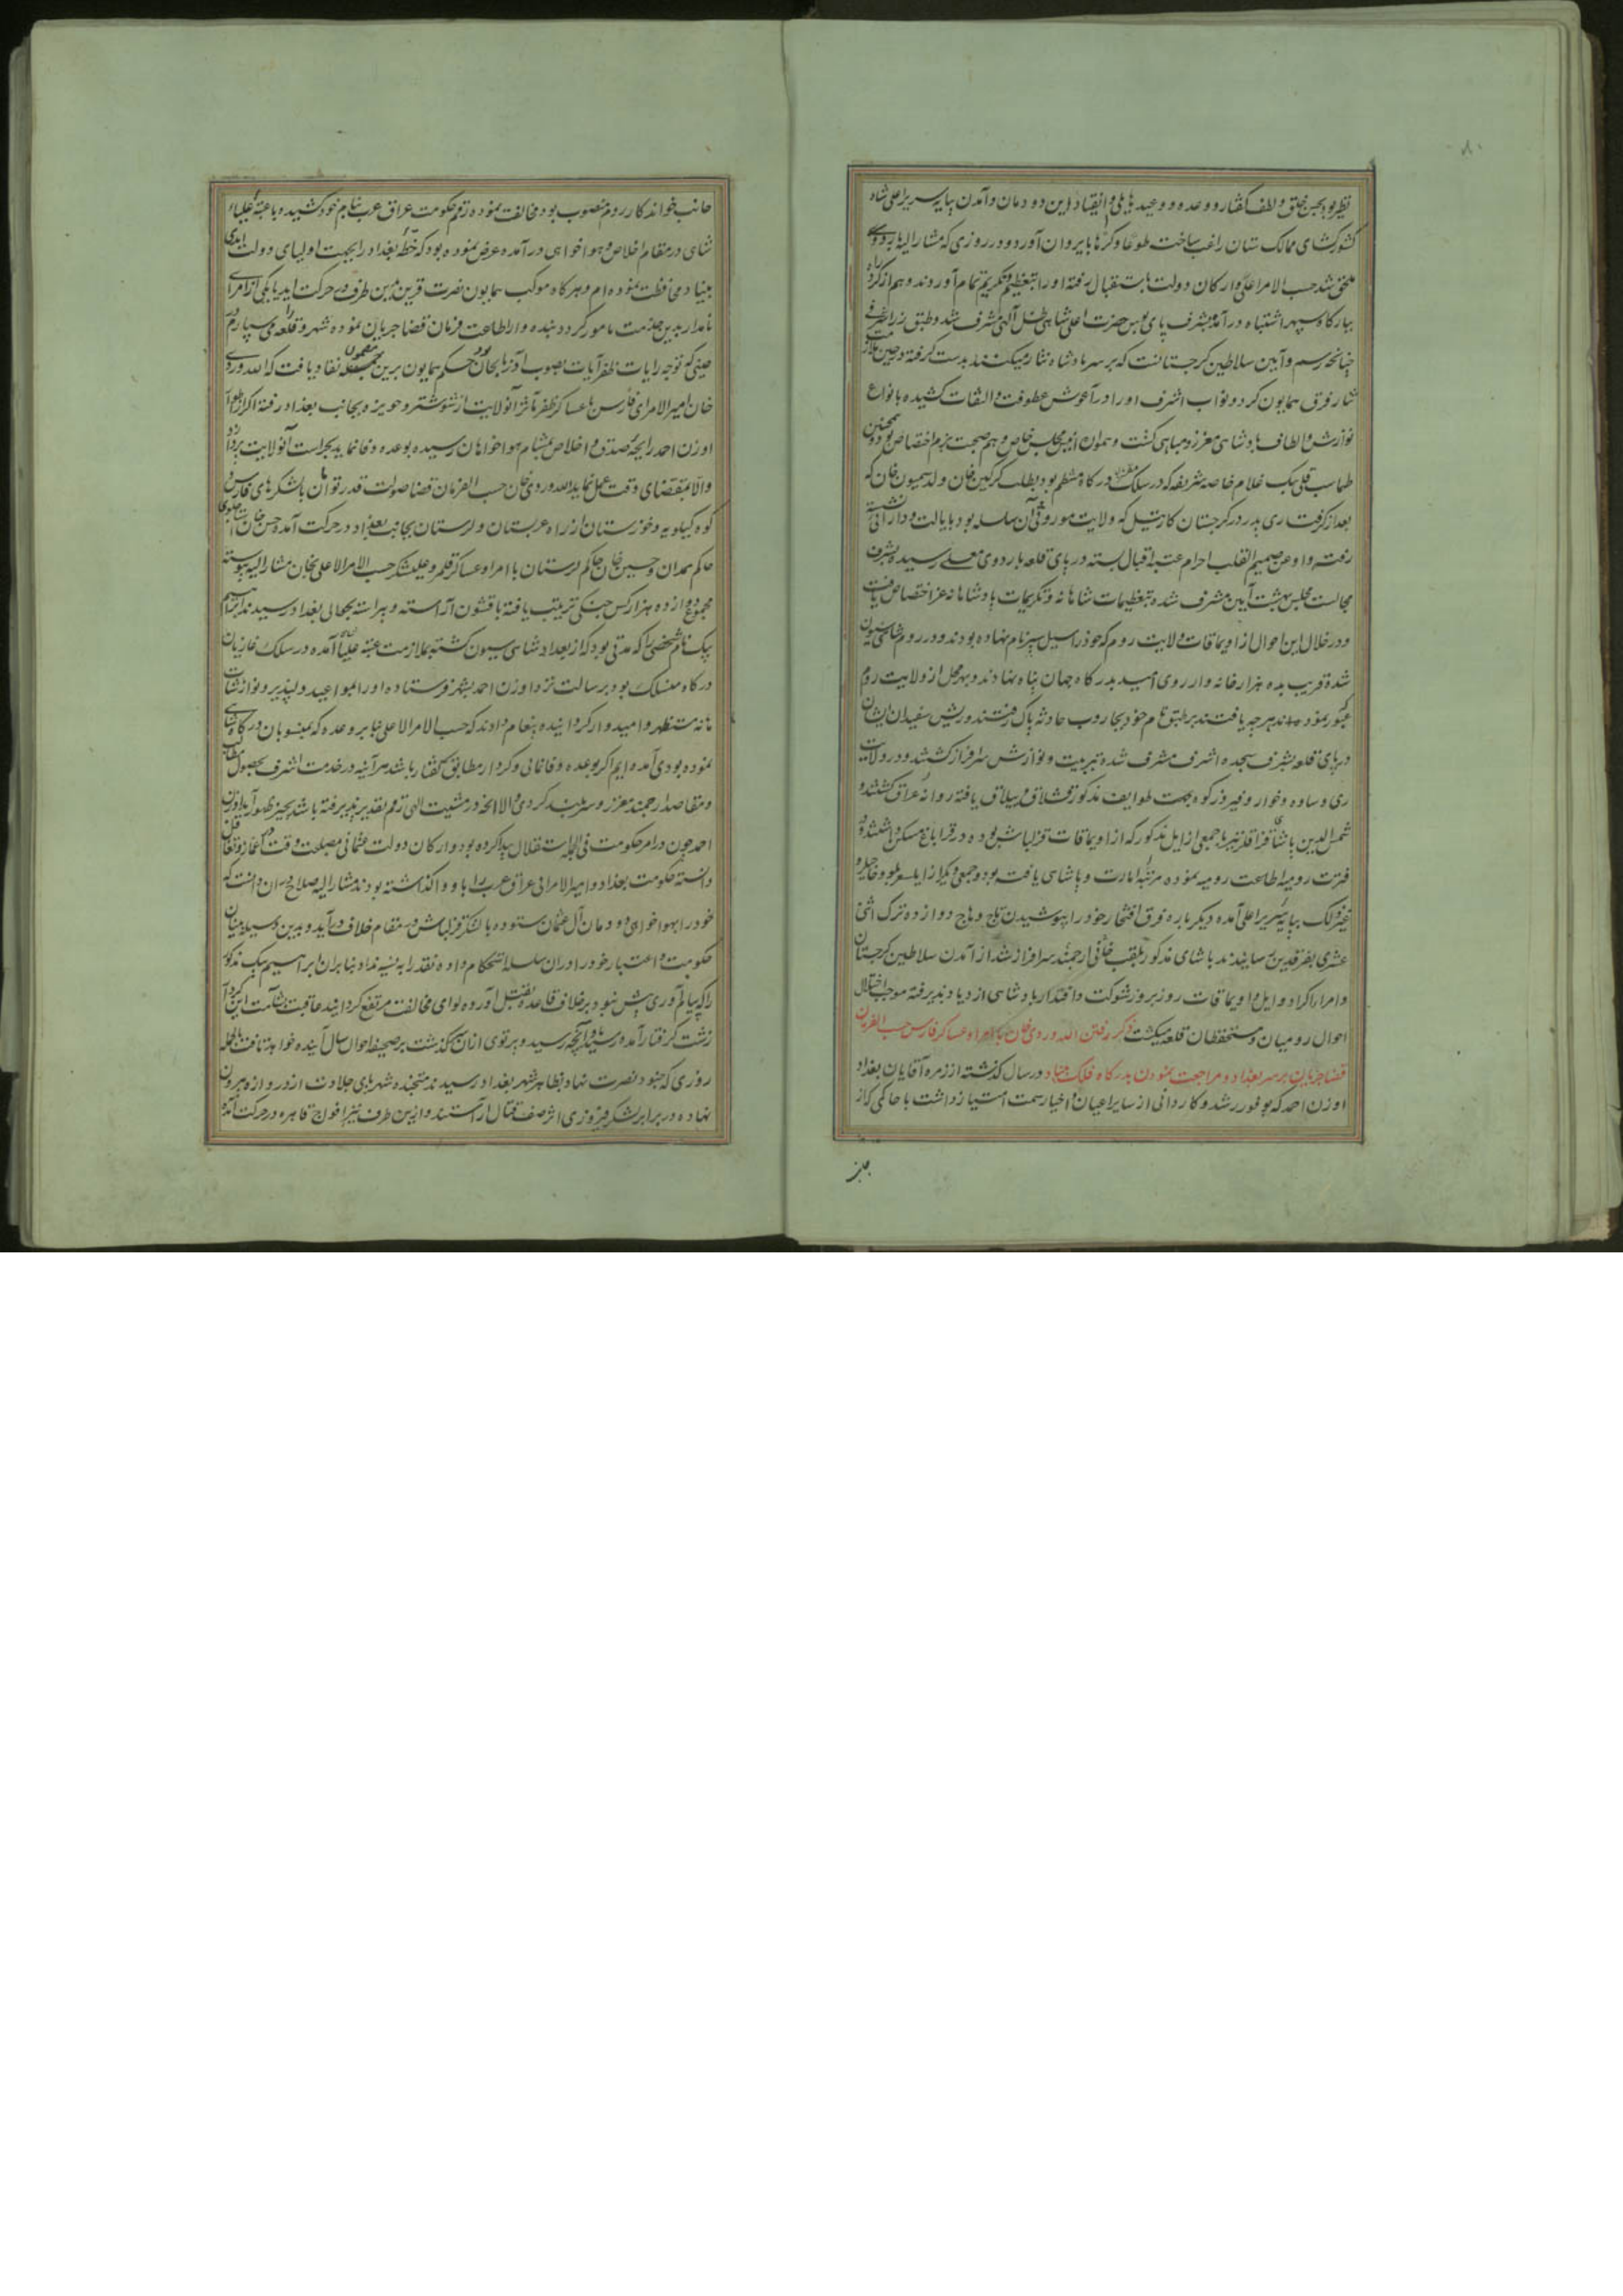 نظیر بود بحسن خلق و لطف گفتار و وعده و وعید مایل و انقیاد این دودمان و آمدن بپایه سریر اعلی شاه
کشورکشای ممالک ستان راغب ساخت طوعا و کرها با پیروان آورد و در روزی که مشارالیه باردوی
ملحق شد حسب الامر اعلی ارکان دولت باستقبال رفته او را بتعظیم و تکریم تمام آوردند و هم از کرد راه
ببارگاه سپهر اشتباه در آمده بشرف پای بوس حضرت اعلی شاهی ظل آلهی مشرف شد و طبق زر اشرفی
چنانچه رسم و آیین سلاطین کرجستانست که بر سر پادشاه نثار میکنند بدست گرفته و حین ملازمت
نثار فرق همایون کرد و نواب اشرف او را در آغوش عطوفت و التفات کشیده بانواع
نوازش و الطاف پادشاهی معزز و مباهی کشت و همواره انیس مجلس خاص و هم صحبت بزم اختصاص بود و همچنین
طهماسب قلی بیک غلام خاصه شریفه که در سلک مقربان درگاه منتظم بود بطلب کرکین خان ولد سیمون خان که
بعد از گرفتاری پدر در کرجستان کارتیل که ولایت موروثی آن سلسله بود بایالت و دارائی نشسته
رفته بود او عن صمیم القلب احرام عتبه اقبال بسته در پای قلعه باردوی معلی رسید و بشرف
مجالست مجلس بهشت آیین مشرف شده بتعظیمات شاهانه و تکریمات پادشاهانه عز اختصاص یافت
و در خلال این احوال از اویماقات ولایت روم که خود را سیل سپر نام نهاده بودند و در روم شاهی سیون
شده قریب بده هزار خانه وار روی امید بدرگاه جهان پناه نهادند و بهر محل از ولایت روم
عبور نمودند هر چه یافتند بر طبق نام خود بجاروب حادثه پاک رفتند و ریش سفیدان ایشان
در پای قلعه بشرف سجده اشرف مشرف شده بتربیت و نوازش سرافراز کشتند و در ولایت
ری و ساوه و خوار و فیروزکوه جهت طوایف مذکور قشلاق و ییلاق یافته روانه عراق کشتند و
شمس الدین پاشای قزاقلر نیز با جمعی از ایل مذکور که از اویماقات قزلباش بوده در قراباغ مسکن داشتند و در
فترت رومیه اطاعت رومیه نموده مرتبه امارت و پاشایی یافته بود و جمعی دیگر از ایلسور و خلیلو و
غیر ذلک بپایه سریر اعلی آمده دیگر باره فرق افتخار خود را بپوشیدن تاج وهاج دوازده ترک اثنی
عشری بفرقدین رسانیدند پاشای مذکور بلقب خانی ارجمند سرافراز شد از آمدن سلاطین کرجستان
و امراء اکراد و ایل و اویماقات روز بروز شوکت و اقتدار پادشاهی ازدیاد پذیرفته موجب اختلال
احوال رومیان و مستحفظان قلعه میکشت ذکر رفتن الله ویردی خان با امرا و عساکر فارس حسب الفرمان
قضا جریان بر سر بغداد و مراجعت نمودن بدرگاه فلک بنیاد در سال گذشته از زمره آقایان بغداد
اوزن احمد که بوفور رشد و کاردانی از سایر اعیان و اخیار سمت امتیاز داشت با حاکمی که از
جانب
جانب خواندکار روم منصوب بود مخالفت نموده رقم حکومت عراق عرب بنام خود کشیده با عتبه علیاء
شاهی در مقام اخلاص و هواخواهی در آمده عرض نموده بود که خطه بغداد را بجهت اولیای دولت ابدی
بنیاد محافظت نموده ام و هر گاه موکب همایون نصرت قرین بدین طرف در حرکت آید یا یکی از امرای
نامدار بدین خدمت مامور گردد بنده وار اطاعت فرمان قضا جریان نموده شهر و قلعه را می سپارم در
حینی که توجه رایات ظفر آیات بصوب آذربایجان بود حکم همایون برین مضمون نفاذ یافت که الله وردی
خان امیر الامرای فارس با عساکر ظفر مآثر آن ولایت از شوشتر و حویزه بجانب بغداد رفته اگر از اطوار
اوزن احمد رایحه صدق و اخلاص بمشام هواخواهان رسیده بوعده وفا نماید بحراست آن ولایت پردازد
و الا بمقتضای وقت عمل نماید الله وردی خان حسب الفرمان قضا صولت قدر توأمان با لشکرهای فارس و
کوه گیلویه و خوزستان از راه عربستان و لرستان بجانب بغداد در حرکت آمد و حسن خان استاجلو
حاکم همدان و حسین خان حاکم لرستان با امرا و عساکر قلمرو علیشکر حسب الامر الاعلی بخان مشارالیه پیوسته
مجموع دوازده هزار کس جنگی ترتیب یافته با قشون آراسته و پیراسته بحوالی بغداد رسیدند ابراهیم
بیک نام شخصی را که مدتی بود که از بغداد شاهی سیون کشته بملازمت عتبه علیا آمده در سلک غازیان
درگاه منسلک بود برسالت نزد اوزن احمد بشهر فرستاده او را بمواعید دلپذیر و نوازشات
شاهانه مستظهر و امیدوار گردانیده پیغام دادند که حسب الامر الاعلی بنا بر وعده که بمنسوبان درگاه شاهی
نموده بودی آمده ایم اگر بوعده وفا نمائی و کردار مطابق گفتار باشد هر آینه در خدمت اشرف بحصول مطالب
و مقاصد ارجمند معزز و سربلند گردی و الا آنچه در مشیت الهی رقم تقدیر پذیرفته باشد بحیز ظهور آید اوزن
احمد چون در امر حکومت فی الجمله استقلال پیدا کرده بود و ارکان دولت عثمانی مصلحت وقت در اغماض و تغافل
دانسته حکومت بغداد و امیر الامرائی عراق عرب را باو واگذاشته بودند مشارالیه صلاح در آن دانست که
خود را بهواخواهی دودمان آل عثمان ستوده با لشکر قزلباش در مقام خلاف در آید و بدین وسیله بنیان
حکومت و اعتبار خود را در آن سلسله استحکام داده نقد را به نسیه نداد بنا بر آن ابراهیم بیک مذکور
را که پیام آوری بیش نبود بر خلاف قاعده بقتل آورده لوای مخالفت مرتفع گردانید عاقبت بشآمت این کردار
زشت گرفتار آمده رسید باو آنچه رسید و پرتوی از آن سرگذشت بر صحیفه احوال سال آینده خواهد تافت بالجمله
روزی که جنود نصرت نهاد بظاهر شهر بغداد رسیدند متجنده شهر پای جلادت از دروازه بیرون
نهاده در برابر لشکر فیروزی اثر صف قتال آراستند و از این طرف نیز افواج قاهره در حرکت آمده